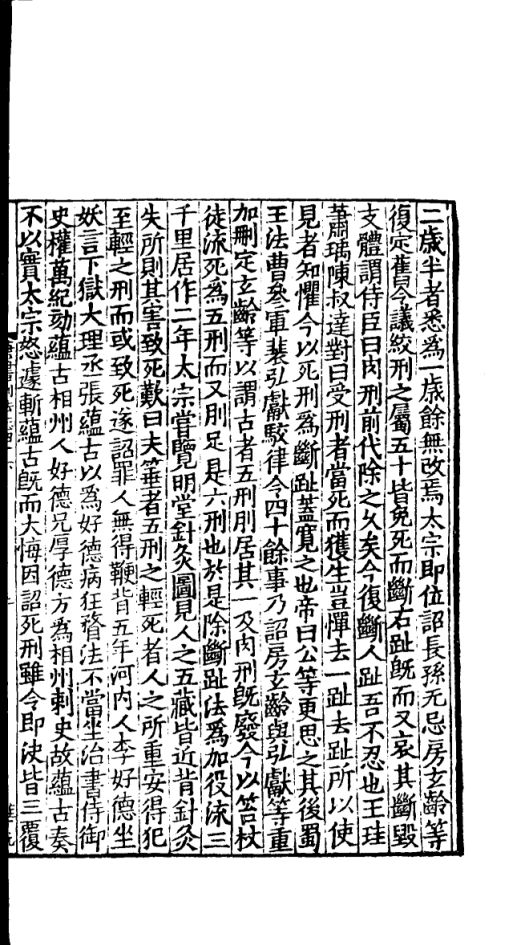 二歲半者悉為一歲餘無改焉太宗即位詔長孫无忌房玄齡等
復定舊令議絞刑之屬五十皆免死而斷右趾既而又哀其斷毀
支體謂侍臣曰肉刑前代除之久矣今復斷人趾吾不忍也王珪
蕭瑀陳叔達對曰受刑者當死而獲生豈憚去一趾去趾所以使
見者知懼今以死刑為斷趾蓋寬之也帝曰公等更思之其後蜀
王法曹參軍裴弘獻駮律令四十餘事乃詔房玄齡與弘獻等重
加刪定玄齡等以謂古者五刑刖居其一及肉刑既廢今以笞杖
徒流死為五刑而又刖足是六刑也於是除斷趾法為加役流三
千里居作二年太宗嘗覽明堂針灸圖見人之五藏皆近背針灸
失所則其害致死歎曰夫箠者五刑之輕死者人之所重安得犯
至輕之刑而或致死遂詔罪人無得鞭背五年河內人李好德坐
妖言下獄大理丞張蘊古以為好德病狂瞀法不當坐治書侍御
史權萬紀劾蘊古相州人好德兄厚德方為相州刺史故蘊古奏
不以實太宗怒遽斬蘊古既而大悔因詔死刑雖令即決皆三覆